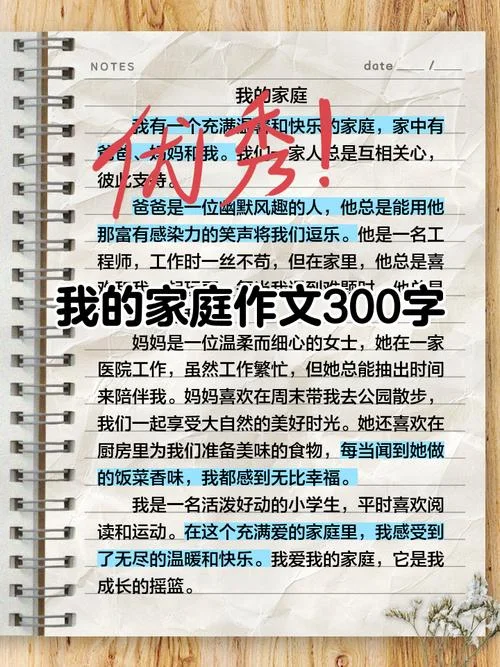 NOTES
date ___ / ___
我的家庭
我有一个充满温馨和快乐的家庭，家中有
爸爸、妈妈和我。我们一家人总是互相关心，
彼此支持。
优秀！
爸爸是一位幽默风趣的人，他总是能用他
那富有感染力的笑声将我们逗乐。他是一名工
程师，工作时一丝不苟，但在家里，他总是喜
我的家庭作文300字
妈妈是一位温柔而细心的女士，她在一家
医院工作，虽然工作繁忙，但她总能抽出时间
来陪伴我。妈妈喜欢在周末带我去公园散步，
我们一起享受大自然的美好时光。她还喜欢在
厨房里为我们准备美味的食物，每当闻到她做
的饭菜香味，我都感到无比幸福。
我是一名活泼好动的小学生，平时喜欢阅
读和运动。在这个充满爱的家庭里，我感受到
了无尽的温暖和快乐。我爱我的家庭，它是我
成长的摇篮。